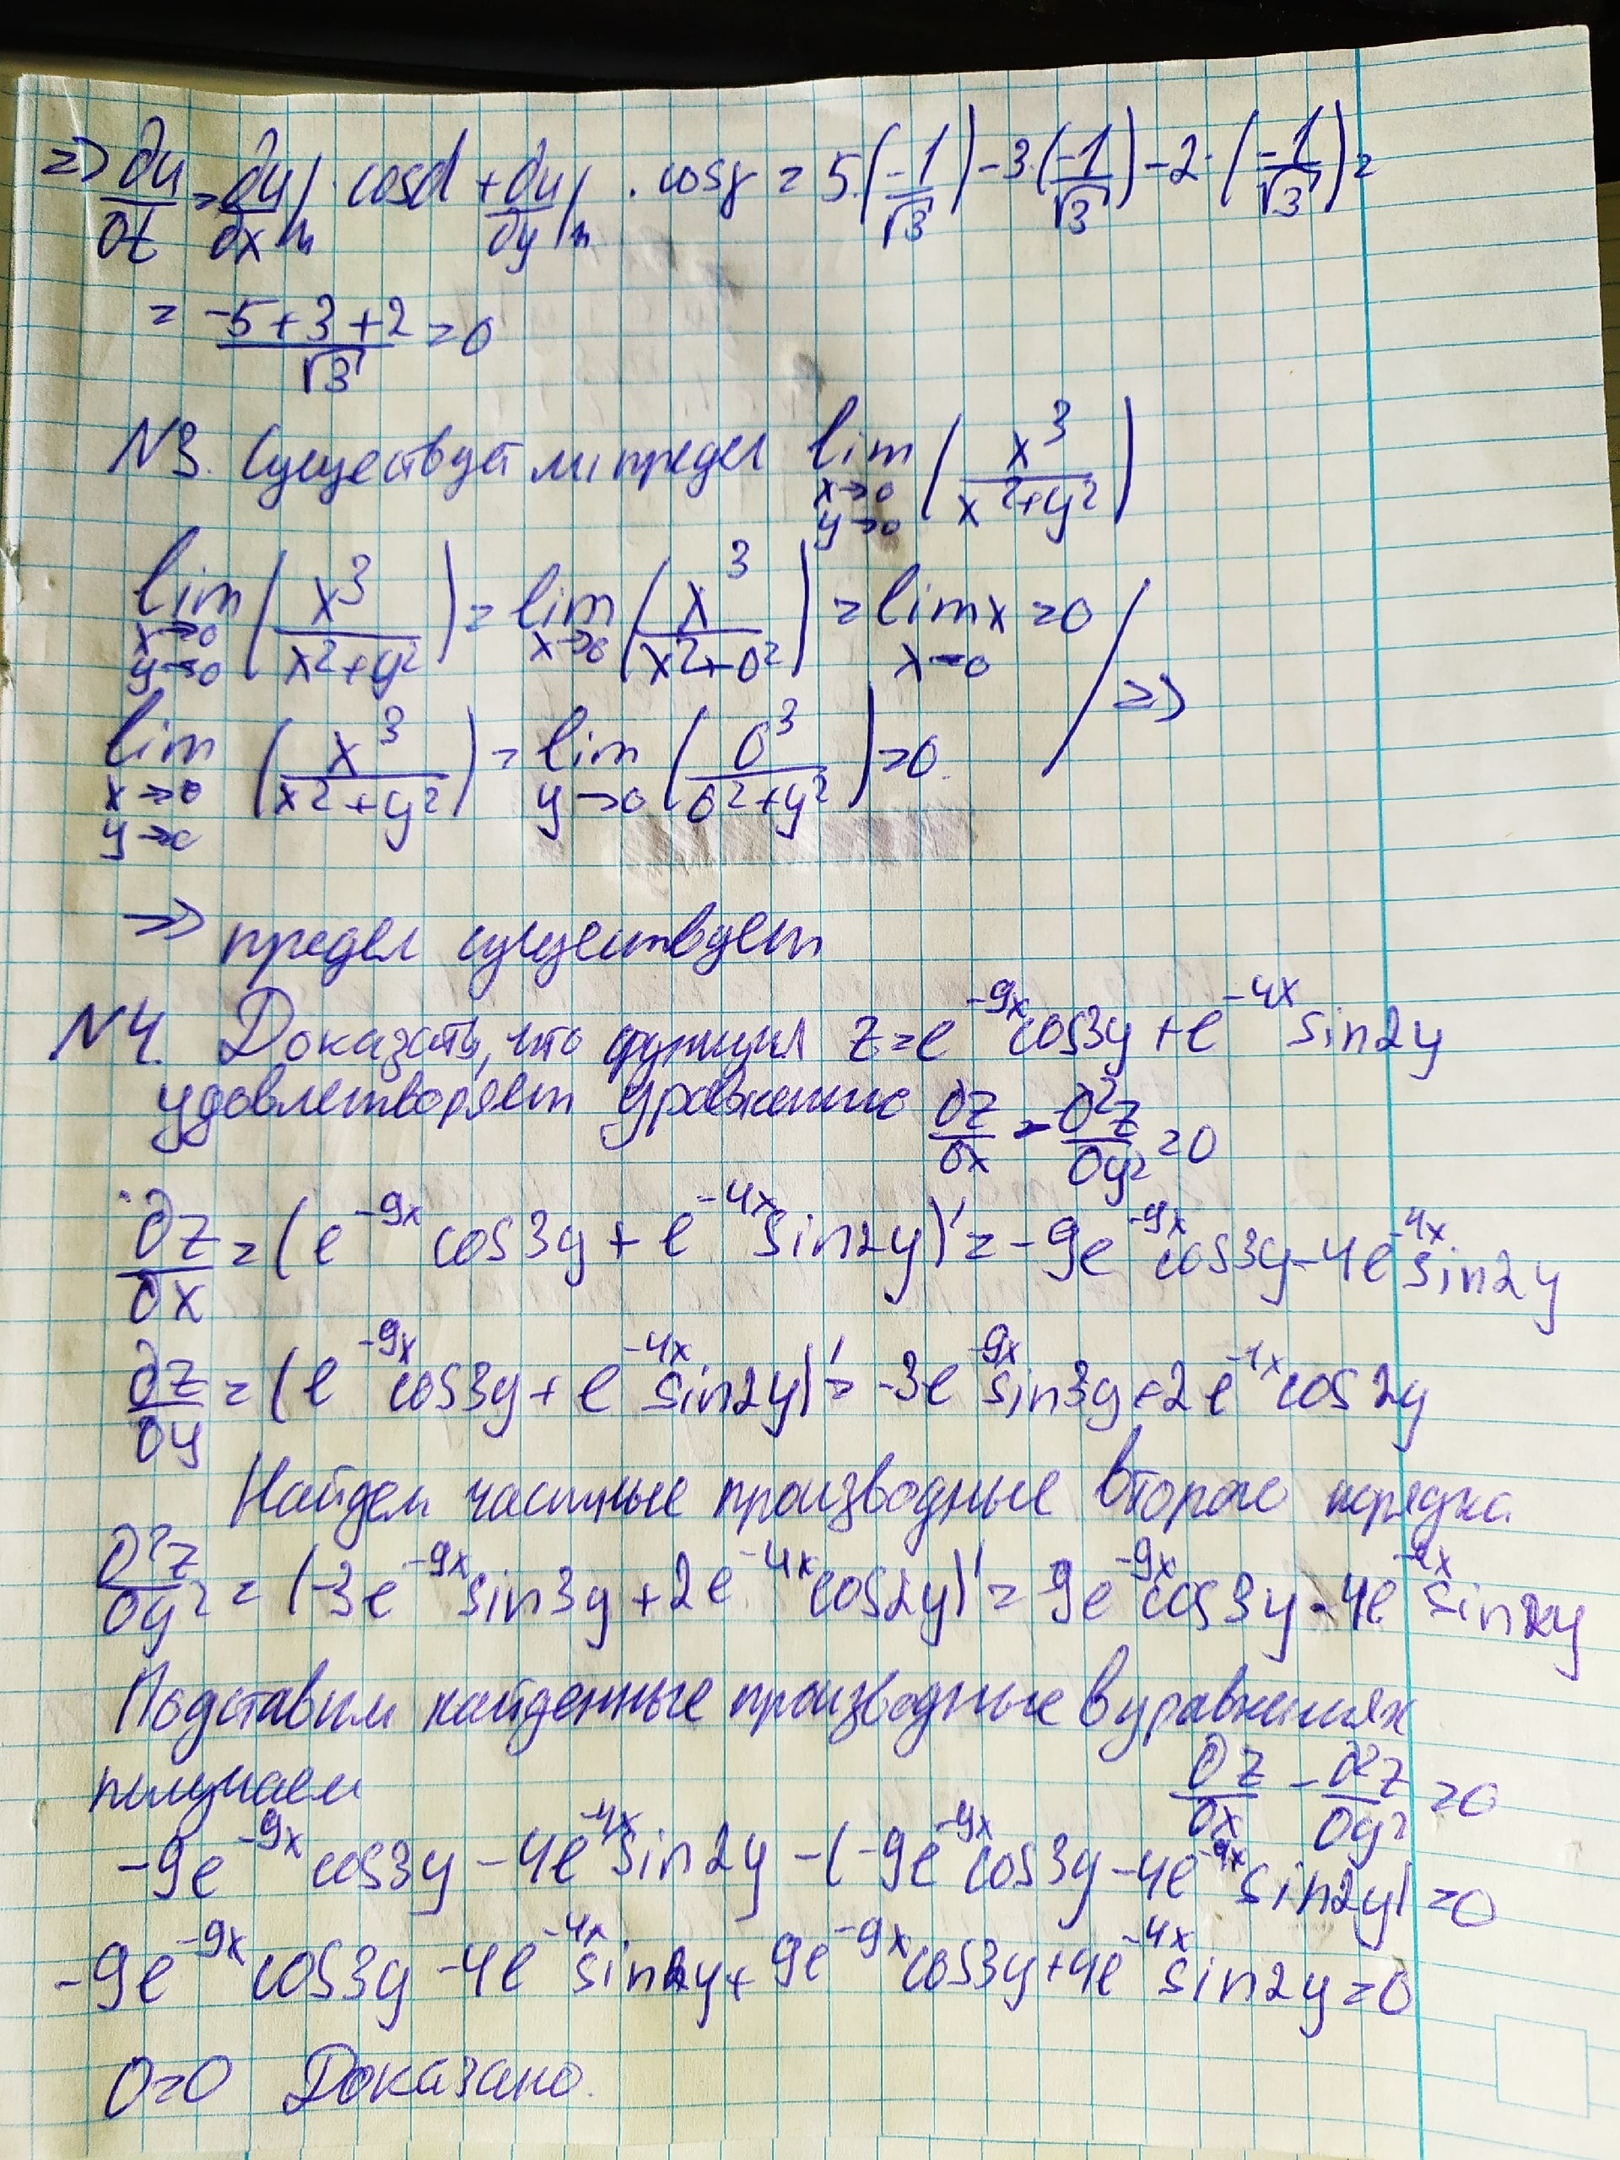 => ∂u/∂t = ∂u/∂x|м · cosα + ∂u/∂y|м · cosγ = 5·(-1/√3) - 3·(-1/√3) - 2·(-1/√3) =
= (-5+3+2)/√3 = 0
N3. Существует ли предел lim x→0 y→0 (x³/(x²+y²))
lim x→0 y→0 (x³/(x²+y²)) = lim x→0 (x³/(x²+0²)) = lim x→0 x = 0
=>
lim x→0 y→0 (x³/(x²+y²)) = lim y→0 (0³/(0²+y²)) = 0.
=> предел существует
N4. Доказать, что функция z = e^(-9x) cos3y + e^(-4x) sin2y
удовлетворяет уравнению ∂z/∂x - ∂²z/∂y² = 0
∂z/∂x = (e^(-9x) cos3y + e^(-4x) sin2y)' = -9e^(-9x) cos3y - 4e^(-4x) sin2y
∂z/∂y = (e^(-9x) cos3y + e^(-4x) sin2y)' = -3e^(-9x) sin3y + 2e^(-4x) cos2y
Найдем частные производные второго порядка
∂²z/∂y² = (-3e^(-9x) sin3y + 2e^(-4x) cos2y)' = 9e^(-9x) cos3y - 4e^(-4x) sin2y
Подставим найденные производные в уравнениях
получаем ∂z/∂x - ∂²z/∂y² = 0
-9e^(-9x) cos3y - 4e^(-4x) sin2y - (-9e^(-9x) cos3y - 4e^(-4x) sin2y) = 0
-9e^(-9x) cos3y - 4e^(-4x) sin2y + 9e^(-9x) cos3y + 4e^(-4x) sin2y = 0
0=0 Доказано.